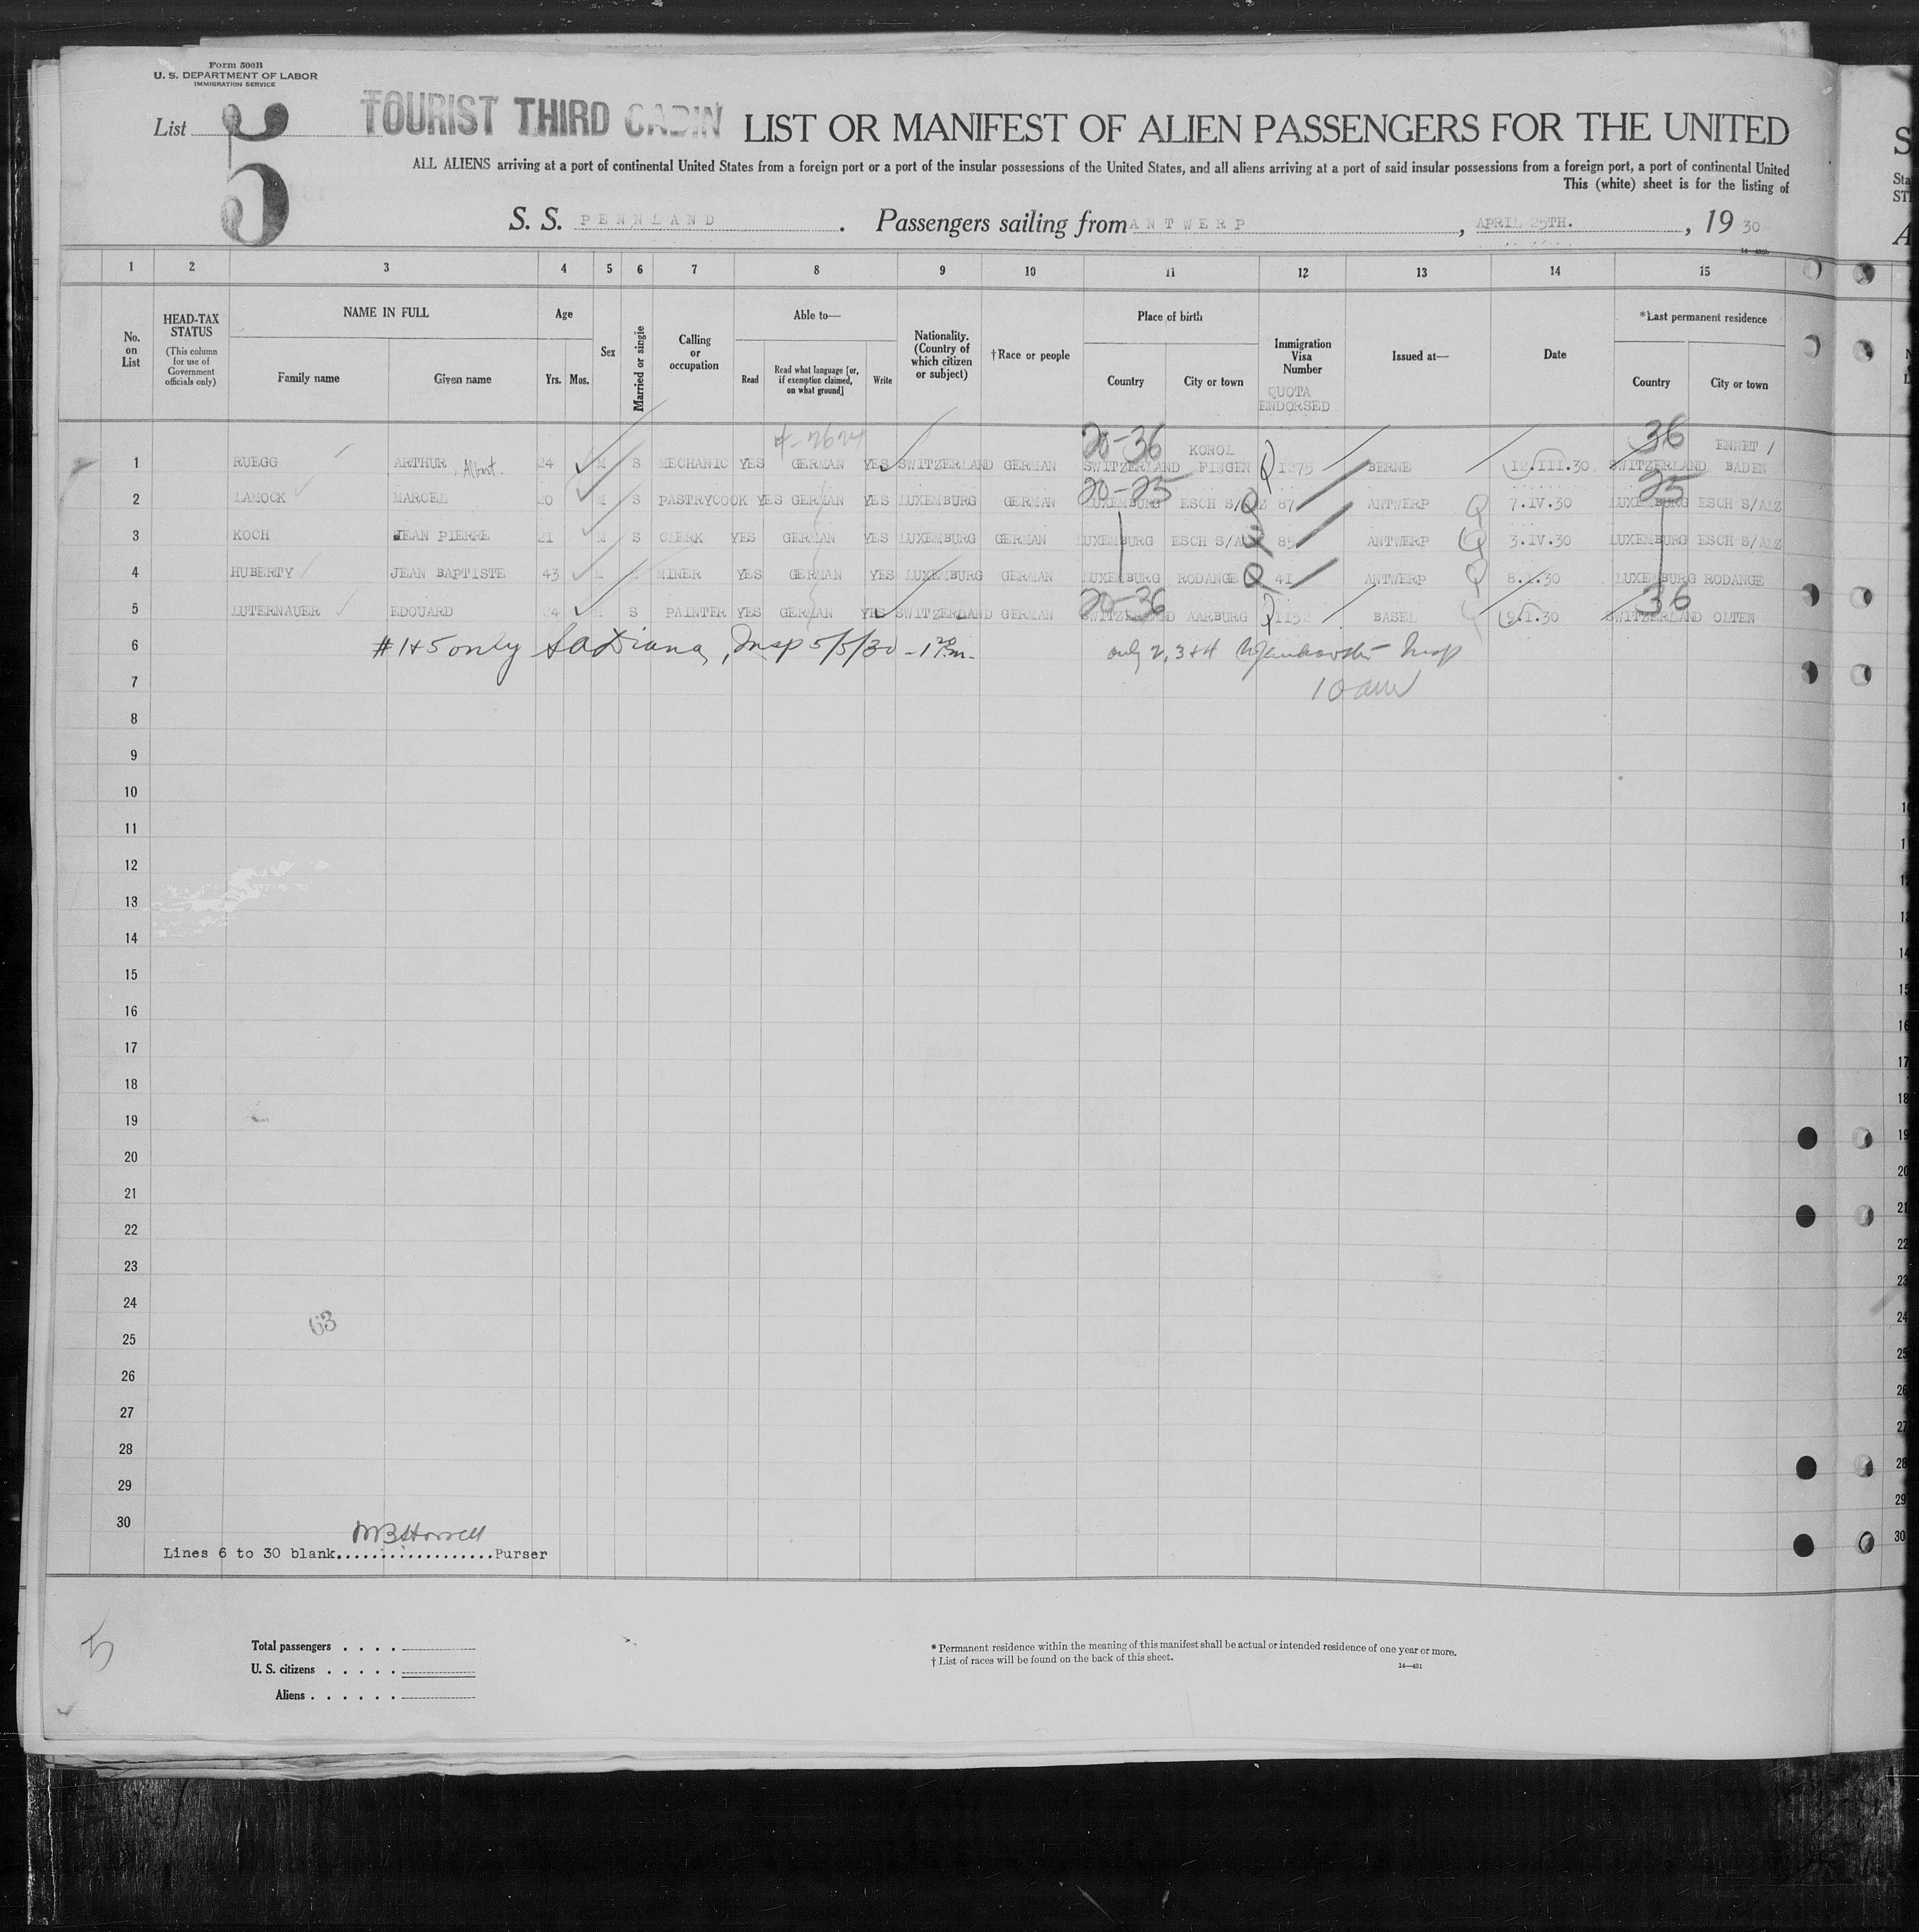 Form 500B
U. S. DEPARTMENT OF LABOR
IMMIGRATION SERVICE
List 5 TOURIST THIRD CABIN LIST OR MANIFEST OF ALIEN PASSENGERS FOR THE UNITED
ALL ALIENS arriving at a port of continental United States from a foreign port or a port of the insular possessions of the United States, and all aliens arriving at a port of said insular possessions from a foreign port, a port of continental United
This (white) sheet is for the listing of
S. S. PENNLAND. Passengers sailing from ANTWERP, APRIL 25TH., 19 30
1 2 3 4 5 6 7 8 9 10 11 12 13 14 15
No. on List
HEAD-TAX STATUS (This column for use of Government officials only)
NAME IN FULL
Family name Given name
Age
Yrs. Mos.
Sex
Married or single
Calling or occupation
Able to—
Read Read what language [or, if exemption claimed, on what ground] Write
Nationality. (Country of which citizen or subject)
†Race or people
Place of birth
Country City or town
Immigration Visa Number
QUOTA ENDORSED
Issued at—
Date
*Last permanent residence
Country City or town
20-36 KONOL 36 ENNET
1 RUEGG ARTHUR, Albert. 24 M S MECHANIC YES GERMAN YES SWITZERLAND GERMAN SWITZERLAND FINGEN Q 1275 BERNE 12.III.30 SWITZERLAND BADEN
20-25 25
2 LAMOCK MARCEL 20 M S PASTRYCOOK YES GERMAN YES LUXEMBURG GERMAN LUXEMBURG ESCH S/ALZ Q 87 ANTWERP Q 7.IV.30 LUXEMBURG ESCH S/ALZ
3 KOCH JEAN PIERRE 21 M S CLERK YES GERMAN YES LUXEMBURG GERMAN LUXEMBURG ESCH S/ALZ Q 85 ANTWERP Q 3.IV.30 LUXEMBURG ESCH S/ALZ
4 HUBERTY JEAN BAPTISTE 43 M MINER YES GERMAN YES LUXEMBURG GERMAN LUXEMBURG RODANGE Q 41 ANTWERP Q 8.1.30 LUXEMBURG RODANGE
20-36 36
5 LUTERNAUER EDOUARD 24 S PAINTER YES GERMAN YES SWITZERLAND GERMAN SWITZERLAND AARBURG Q 1152 BASEL 9.1.30 SWITZERLAND OLTEN
6 #1+5 only Insp 5/5/30 only 2, 3+4 Insp
7
8
9
10
11
12
13
14
15
16
17
18
19
20
21
22
23
24
63
25
26
27
28
29
30
Lines 6 to 30 blank..................Purser
5
Total passengers . . . .
U. S. citizens . . . . .
Aliens . . . . . .
* Permanent residence within the meaning of this manifest shall be actual or intended residence of one year or more.
† List of races will be found on the back of this sheet.
14—431